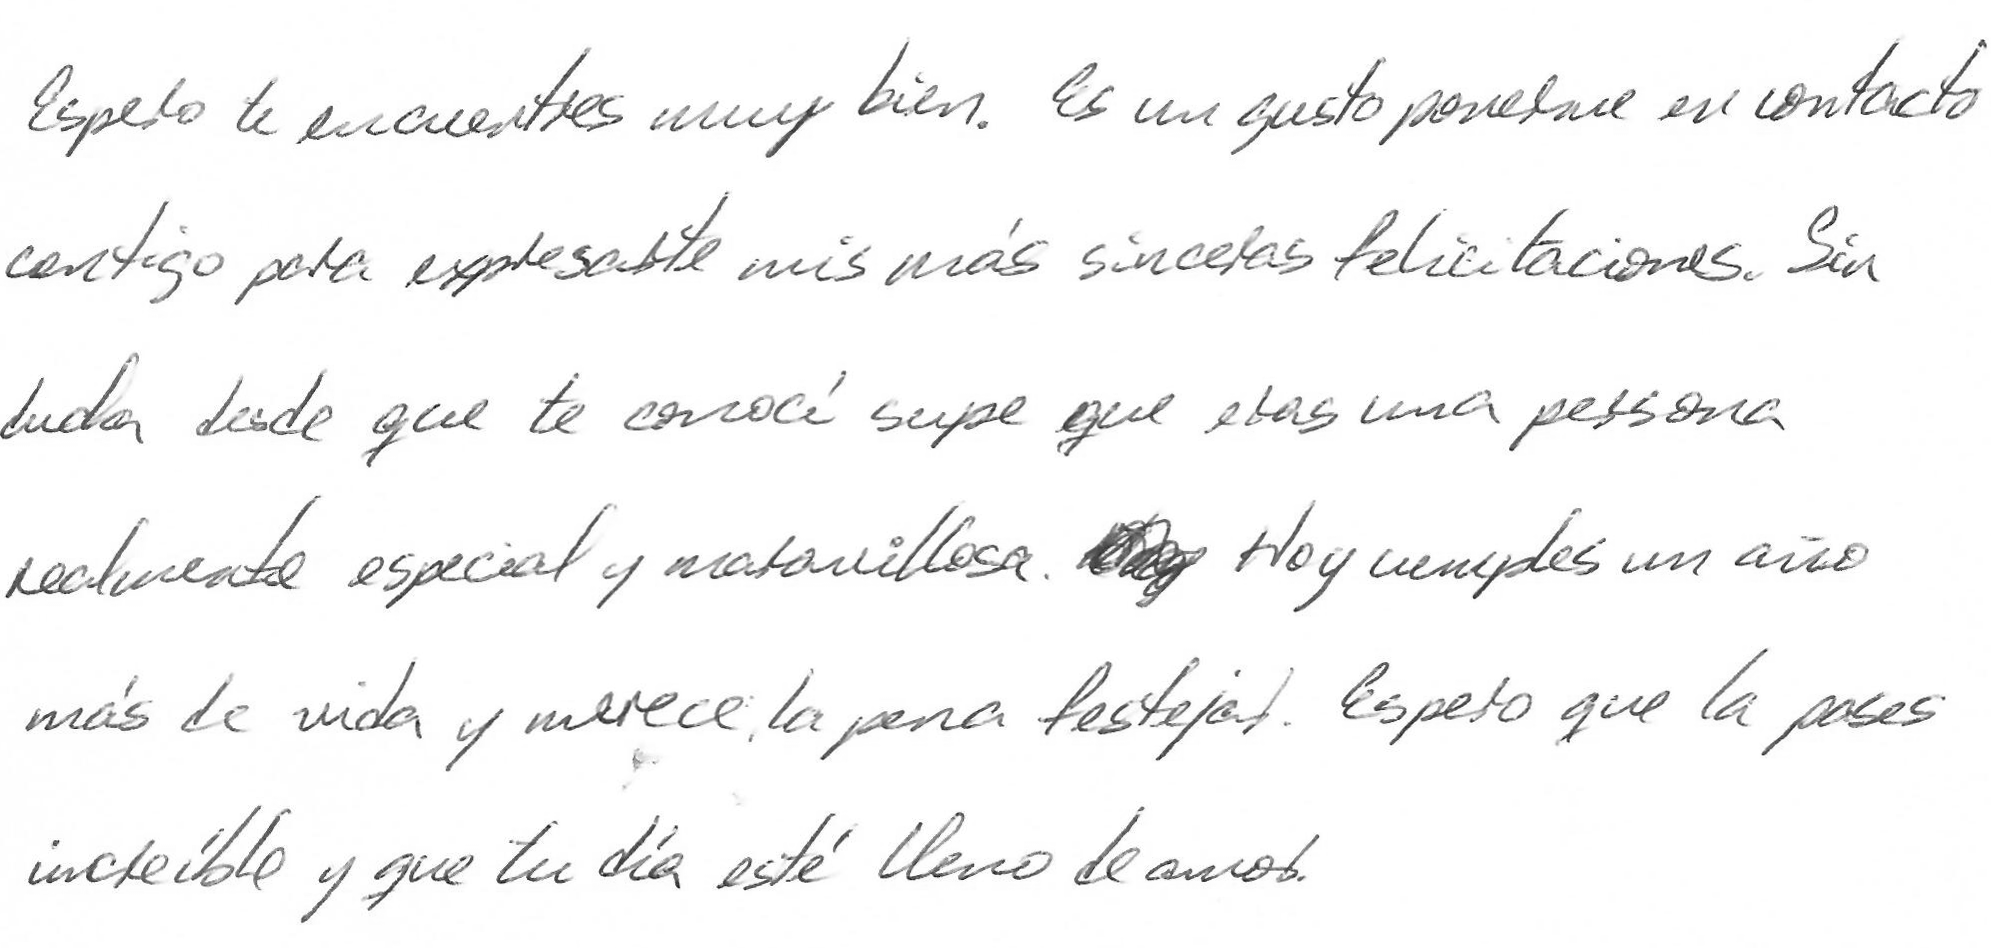 Espero te encuentres muy bien. Es un gusto ponerme en contacto
contigo para expresarte mis más sinceras felicitaciones. Sin
duda desde que te conocí supe que eras una persona
realmente especial y maravillosa. Hoy cumples un año
más de vida y merece la pena festejar. Espero que la pases
increíble y que tu día esté lleno de amor.